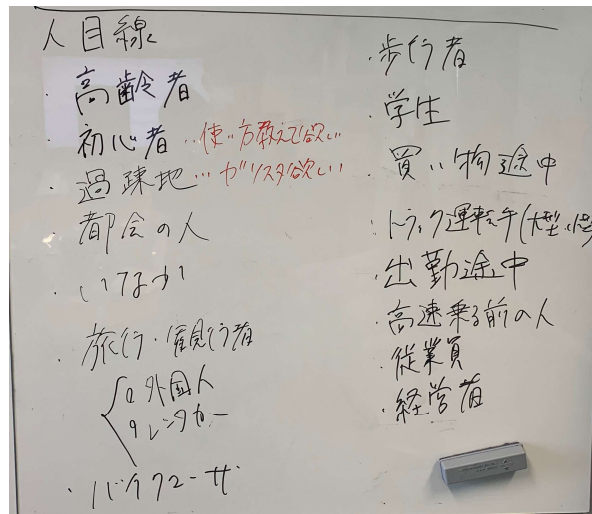 人目線
・高齢者
・初心者 …使い方教えて欲しい
・過疎地 …ガソスタ欲しい
・都会の人
・いなか
・旅行・観光者
外国人
レンタカー
・歩行者
・学生
・買い物途中
・トラック運転手(大型.小
・出勤途中
・高速乗る前の人
・従業員
・経営者